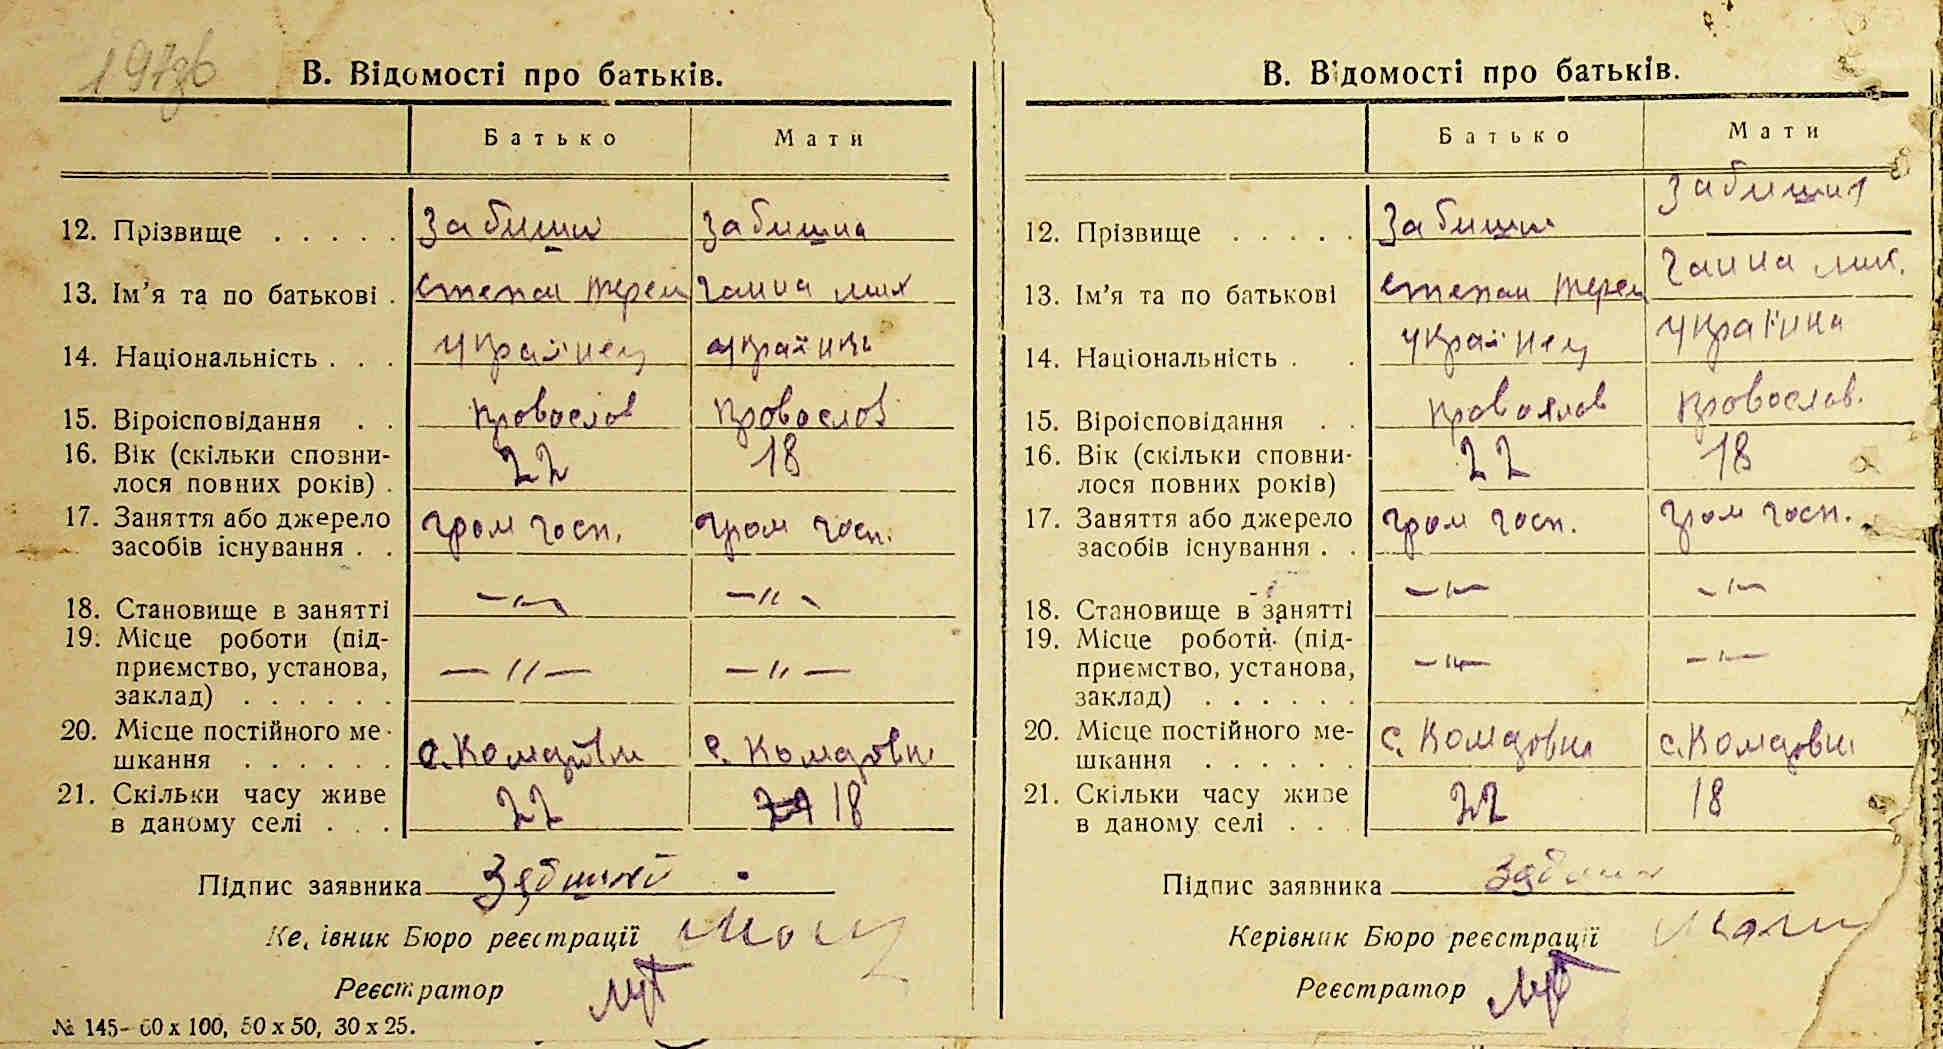 В. Відомості про батьків.
Батько Мати
12. Прізвище . . . . . Забишні Забишна
13. Ім'я та по батькові . степан терен ганна мих
14. Національність . . . українец
15. Віроісповідання . . провослов провослов
16. Вік (скільки сповни-
лося повних років) . 22 18
17. Заняття або джерело
засобів існування . . гром госп. гром госп.
18. Становище в занятті —〃— —〃—
19. Місце роботи (під-
приємство, установа,
заклад) . . . . . . —〃— —〃—
20. Місце постійного ме-
шкання . . . . . . с.
21. Скільки часу живе
в даному селі . . . 22 18
Підпис заявника
Керівник Бюро реєстрації
Реєстратор
№ 145- 60 х 100, 50 х 50, 30 х 25.
В. Відомості про батьків.
Батько Мати
12. Прізвище . . . . . Забишні Забишна
13. Ім'я та по батькові степан терен ганна мих.
14. Національність . . українец україна
15. Віроісповідання . . провослов провослав.
16. Вік (скільки сповни-
лося повних років) 22 18
17. Заняття або джерело
засобів існування . . гром госп. гром госп.
18. Становище в занятті —〃— —〃—
19. Місце роботи (під-
приємство, установа,
заклад) . . . . . . —〃— —〃—
20. Місце постійного ме-
шкання . . . . . . с.
21. Скільки часу живе
в даному селі . . . 22 18
Підпис заявника
Керівник Бюро реєстрації
Реєстратор